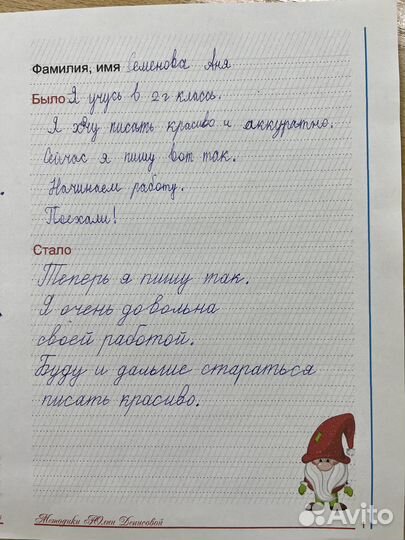 Фамилия, имя Семенова Аня
Было Я учусь в 2 г классь.
Я хчу писать красиво и аккуратно.
Сейчас я пишу вот так.
Начинаем работу.
Поехали!
Стало
Теперь я пишу так.
Я очень довольна
своей работой.
Буду и дальше стараться
писать красиво.
Методики Юлии Денисовой
Avito